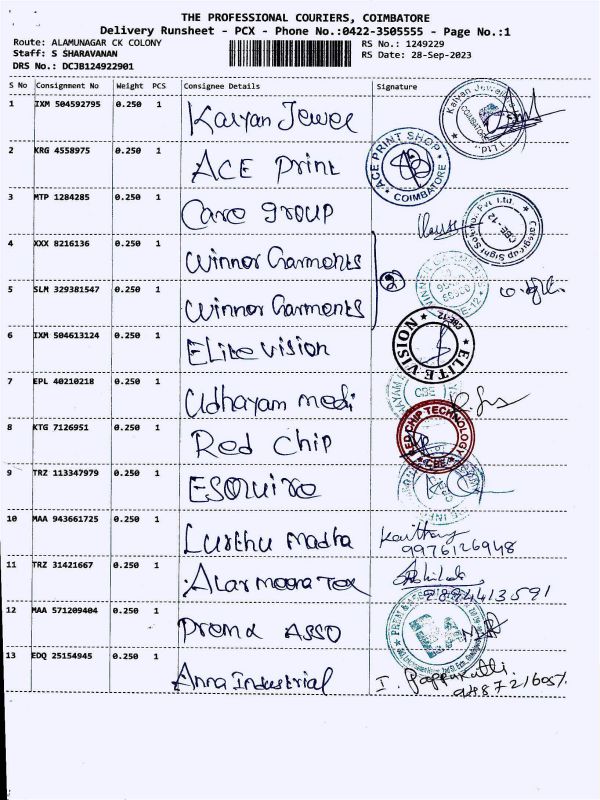 THE PROFESSIONAL COURIERS, COIMBATORE
Delivery Runsheet - PCX - Phone No.:0422-3505555 - Page No.:1
Route: ALAMUNAGAR CK COLONY
RS No.: 1249229
Staff: S SHARAVANAN
RS Date: 28-Sep-2023
DRS No.: DCJB124922901
S No Consignment No Weight PCS Consignee Details Signature
1 IXM 504592795 0.250 1 Kalyan Jewel
2 KRG 4558975 0.250 1 ACE Print
ACE PRINT SHOP COIMBATORE
3 MTP 1284285 0.250 1 Care group
CBE-12
4 XXX 8216136 0.250 1 Winner Garments
2
5 SLM 329381547 0.250 1 Winner Garments
6 IXM 504613124 0.250 1 Elite vision
ELITE VISION CBE-12
7 EPL 40210218 0.250 1 Udhayam medi
CBE
8 KTG 7126951 0.250 1 Red chip
RED CHIP TECHNOLOGY CBE
9 TRZ 113347979 0.250 1 ESquire
10 MAA 943661725 0.250 1 Lurthu Madha
9976126948
11 TRZ 31421667 0.250 1 Alarmoora Tex
12 MAA 571209404 0.250 1 Prema ASSO
13 EDQ 25154945 0.250 1 Anna Industrial
I. Pappukutti